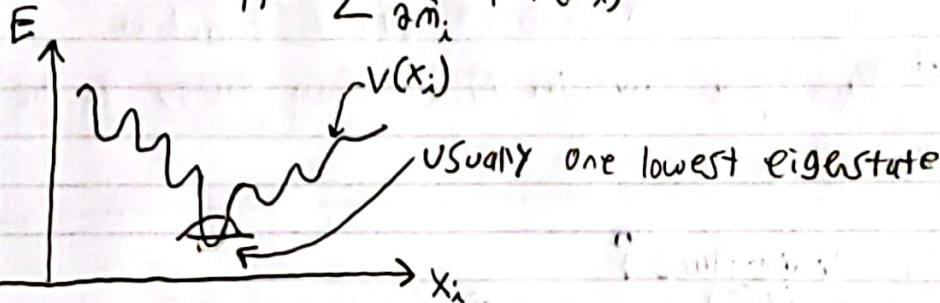 E
2m_i
V(x_i)
usually one lowest eigenstate
x_i